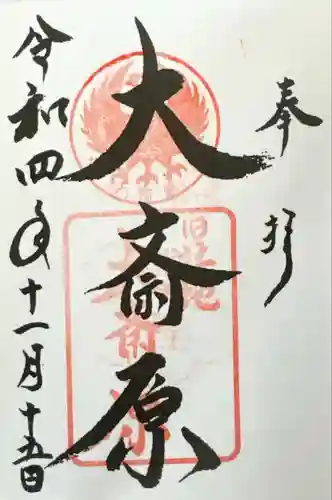 奉拝
旧社地
大斎原
大斎原
令和四年十一月十五日